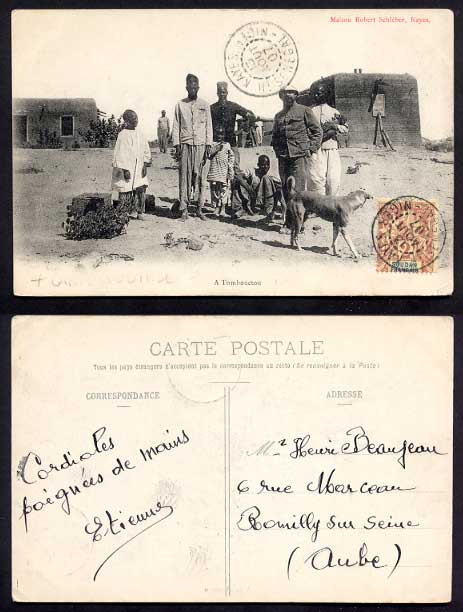 Maison Robert Schléber, Kayes.
KAYES
A Tombouctou
SOUDAN
FRANÇAIS
CARTE POSTALE
Tous les pays étrangers n'acceptent pas la correspondance au recto (Se renseigner à la Poste)
CORRESPONDANCE
ADRESSE
Cordiales
poignées de mains
Etienne
Mr Henri Beaujeau
6 rue Marceau
Romilly sur Seine
(Aube)